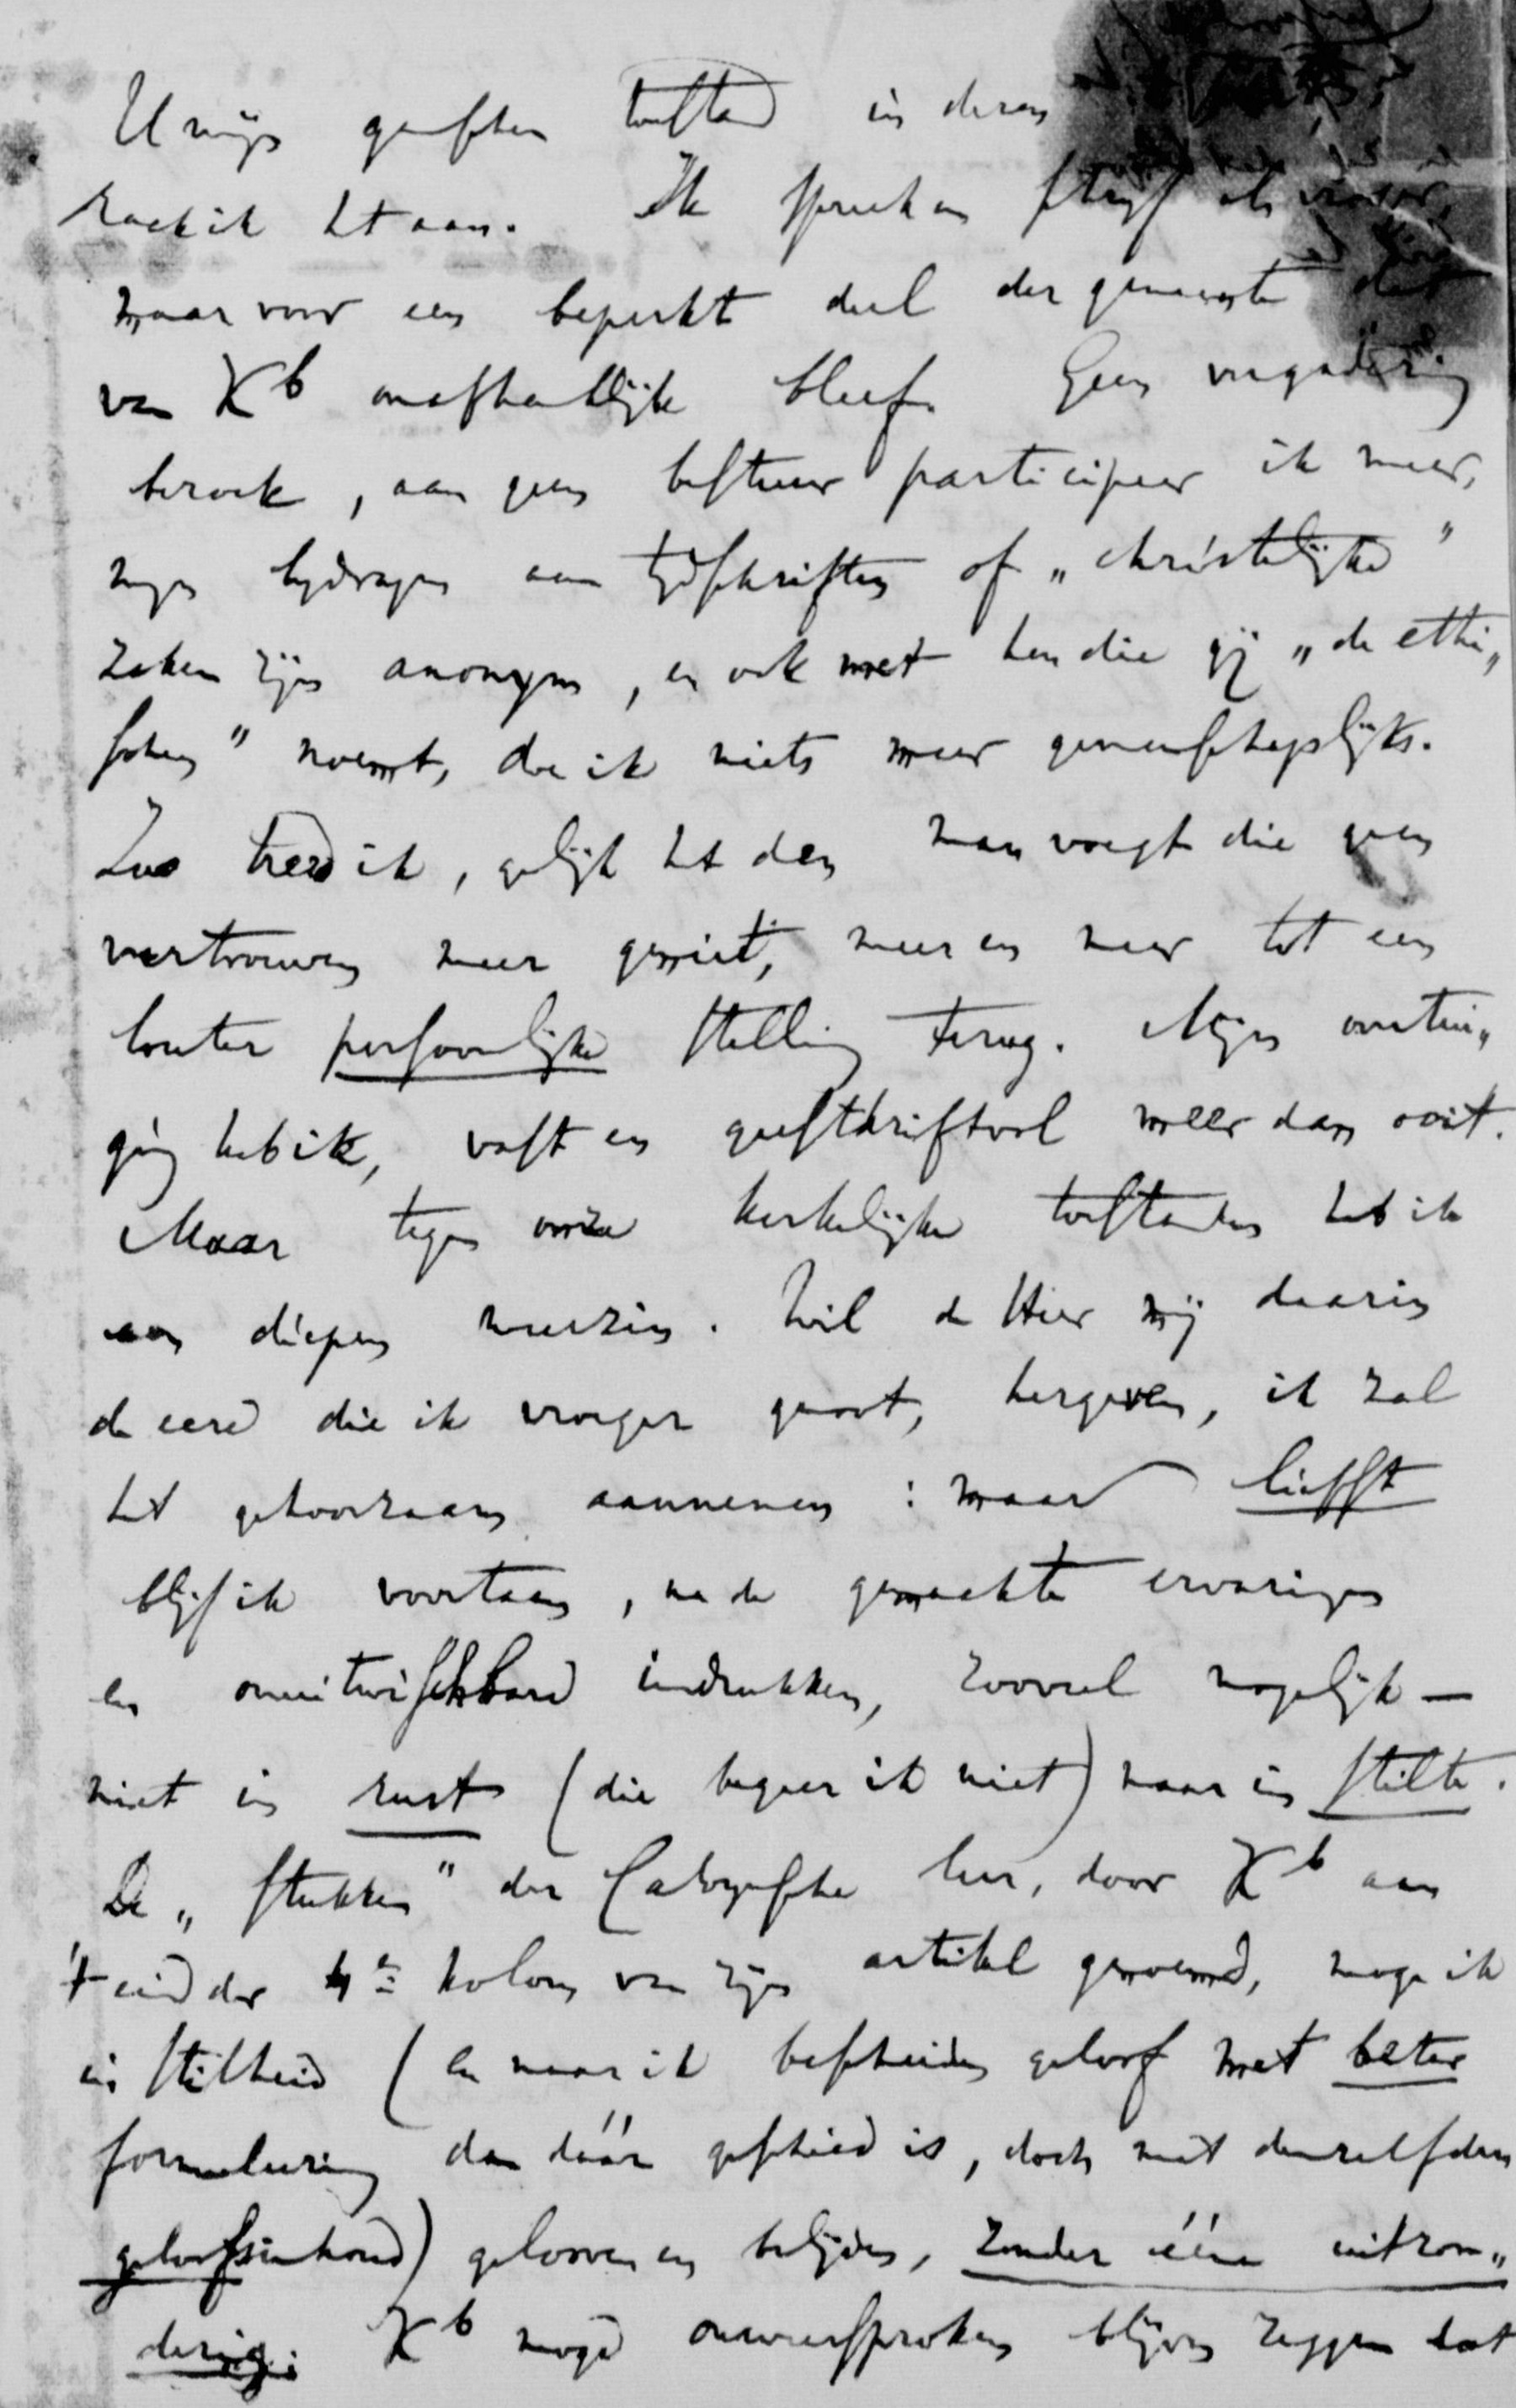 Uwijs geesten toestand in dezen
raak ik het aan. Ik spreek en schrijf als vroeger,
maar voor een beperkt deel der gemeente dat
van Kb onafhankelijk bleef. Geen vergadering
bezoek, aan geen bestuur participeer ik meer,
mijn bijdragen aan tijdschriften of „christelijke"
zaken zijn anonym, en ook met hen die gij „de ethi„
schen" noemt, doe ik niets meer gemeenschappelijks.
Zoo treed ik, gelijk het den man voegt die geen
vertrouwen meer geniet, meer en meer tot een
louter persoonlijke stelling terug. Mijn overtui„
ging heb ik, vast en geestdriftvol meer dan ooit.
Maar tegen onze kerkelijke toestanden heb ik
een diepen weerzin. Wil de Heer mij daarin
de eere die ik vroeger genoot, hergeven, ik zal
het gehoorzaam aannemen: maar liefst
blijf ik voortaan, na de gemaakte ervaringen
en onuitwischbare indrukken, zooveel mogelijk —
niet in rust (die begeer ik niet) maar in stilte.
De „stukken" der Calvynsche leer, door Kb aan
't eind der 4e kolom van zijn artikel genoemd, moge ik
in stilheid (en naar ik bescheiden geloof met beter
formuleering dan dáár geschied is, doch met denzelfden
geloofsinhoud) gelooven en belijden, zonder ééne uitzon„
dering: Kb moge onweersproken blijven zeggen dat